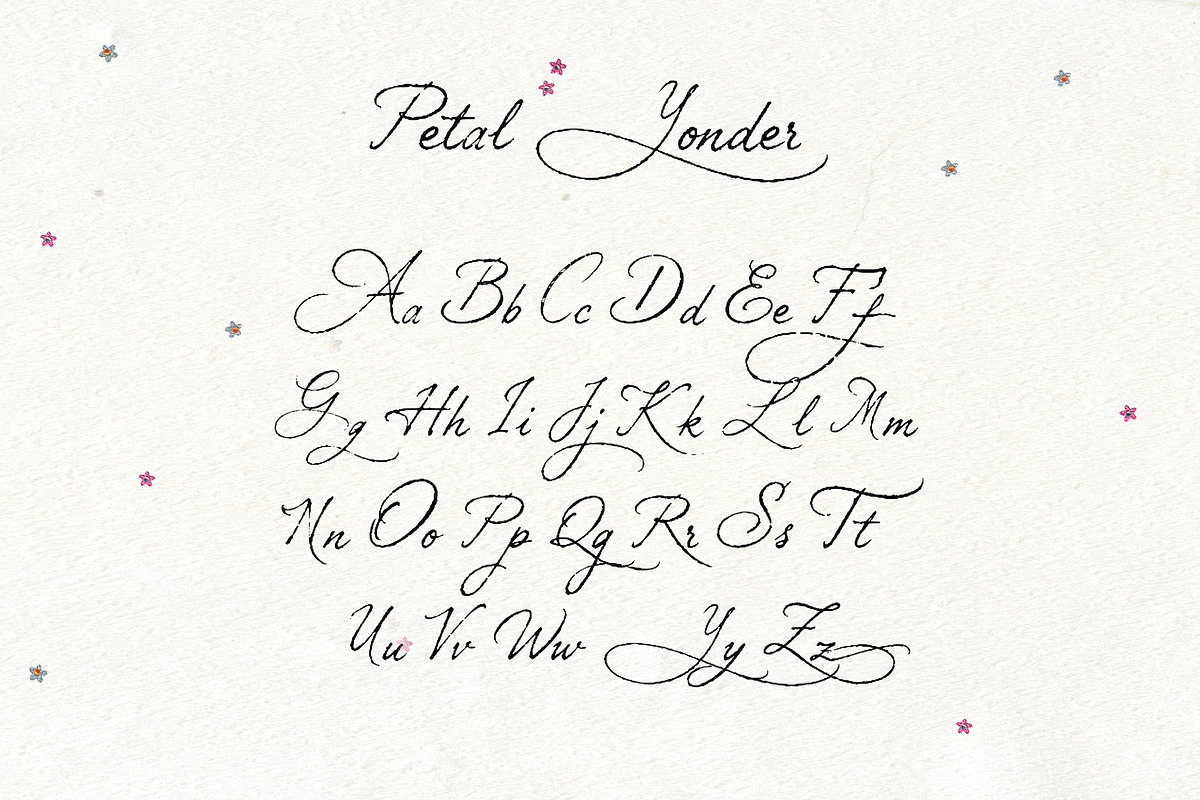 Petal Yonder
Aa Bb Cc Dd Ee Ff
Gg Hh Ii Jj Kk Ll Mm
Nn Oo Pp Qq Rr Ss Tt
Uu Vv Ww Yy Zz